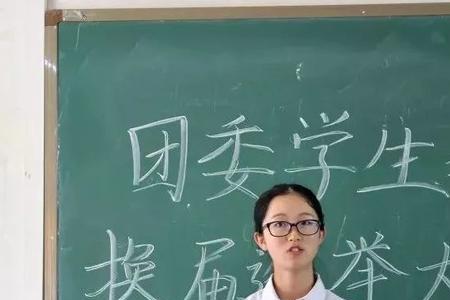 团委学生
换届选举大